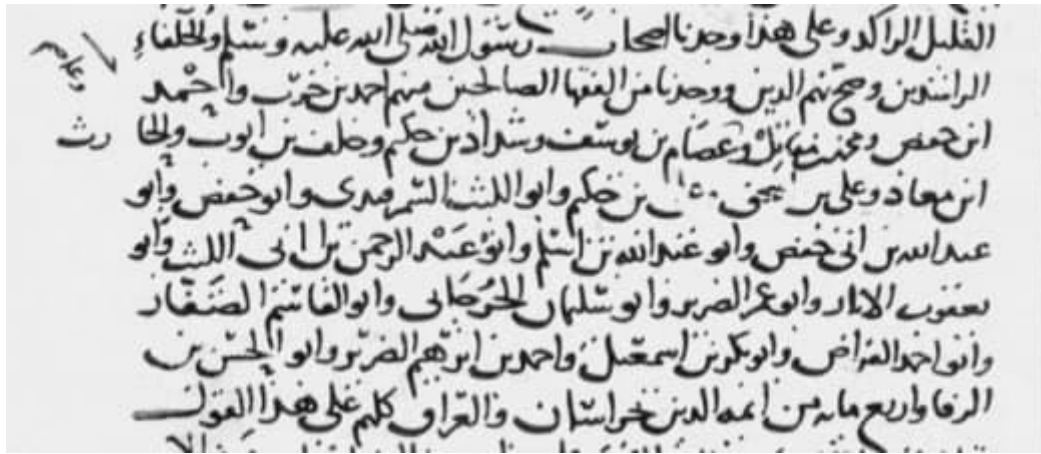 القليل الراكد وعلى هذا وجدنا اصحاب رسول الله صلى الله عليه وسلم والخلفاء
الراشدين وصح بهم الدين ووجدنا من الفقها الصالحين منهم احمد بن حرب واحمد
ابن حفص ومحمد بن مقاتل وعصام بن يوسف وشداد بن حكم وخلف بن ايوب والحارث
ابن معاذ وعلى بن بن حكم وابو الليث السمرقندى وابو حفص وابو
عبد الله بن ابى حفص وابو عبد الله بن اسلم وابو عبد الرحمن بن ابى الليث وابو
يعقوب الابار وابو عمر الضرير وابو سليمان الجرجانى وابو القاسم الصفار
وابو احمد القراض وابو بكر بن اسمعيل واحمد بن ابرهيم الضرير وابو الحسن بن
الرفا واربع مايه من ايمه الدين خراسان والعراق كلهم على هذا القول